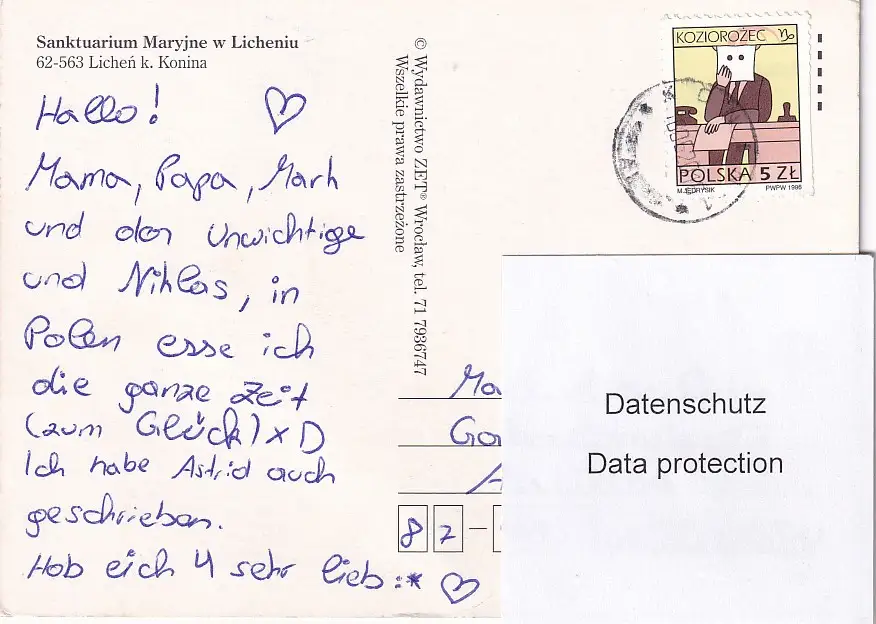 Sanktuarium Maryjne w Licheniu
62-563 Licheń k. Konina
Hallo! ♡
Mama, Papa, Mark
und der Unwichtige
und Niklas, in
Polen esse ich
die ganze Zeit
(zum Glück) xD
Ich habe Astrid auch
geschrieben.
Hab eich 4 sehr lieb :* ♡
© Wydawnictwo ZET® Wrocław, tel. 71 7936747
Wszelkie prawa zastrzeżone
KOZIOROŻEC ♑
POLSKA 5 ZŁ
M.JĘDRYSIK PWPW 1996
Ma
Ga
A
82-
Datenschutz
Data protection